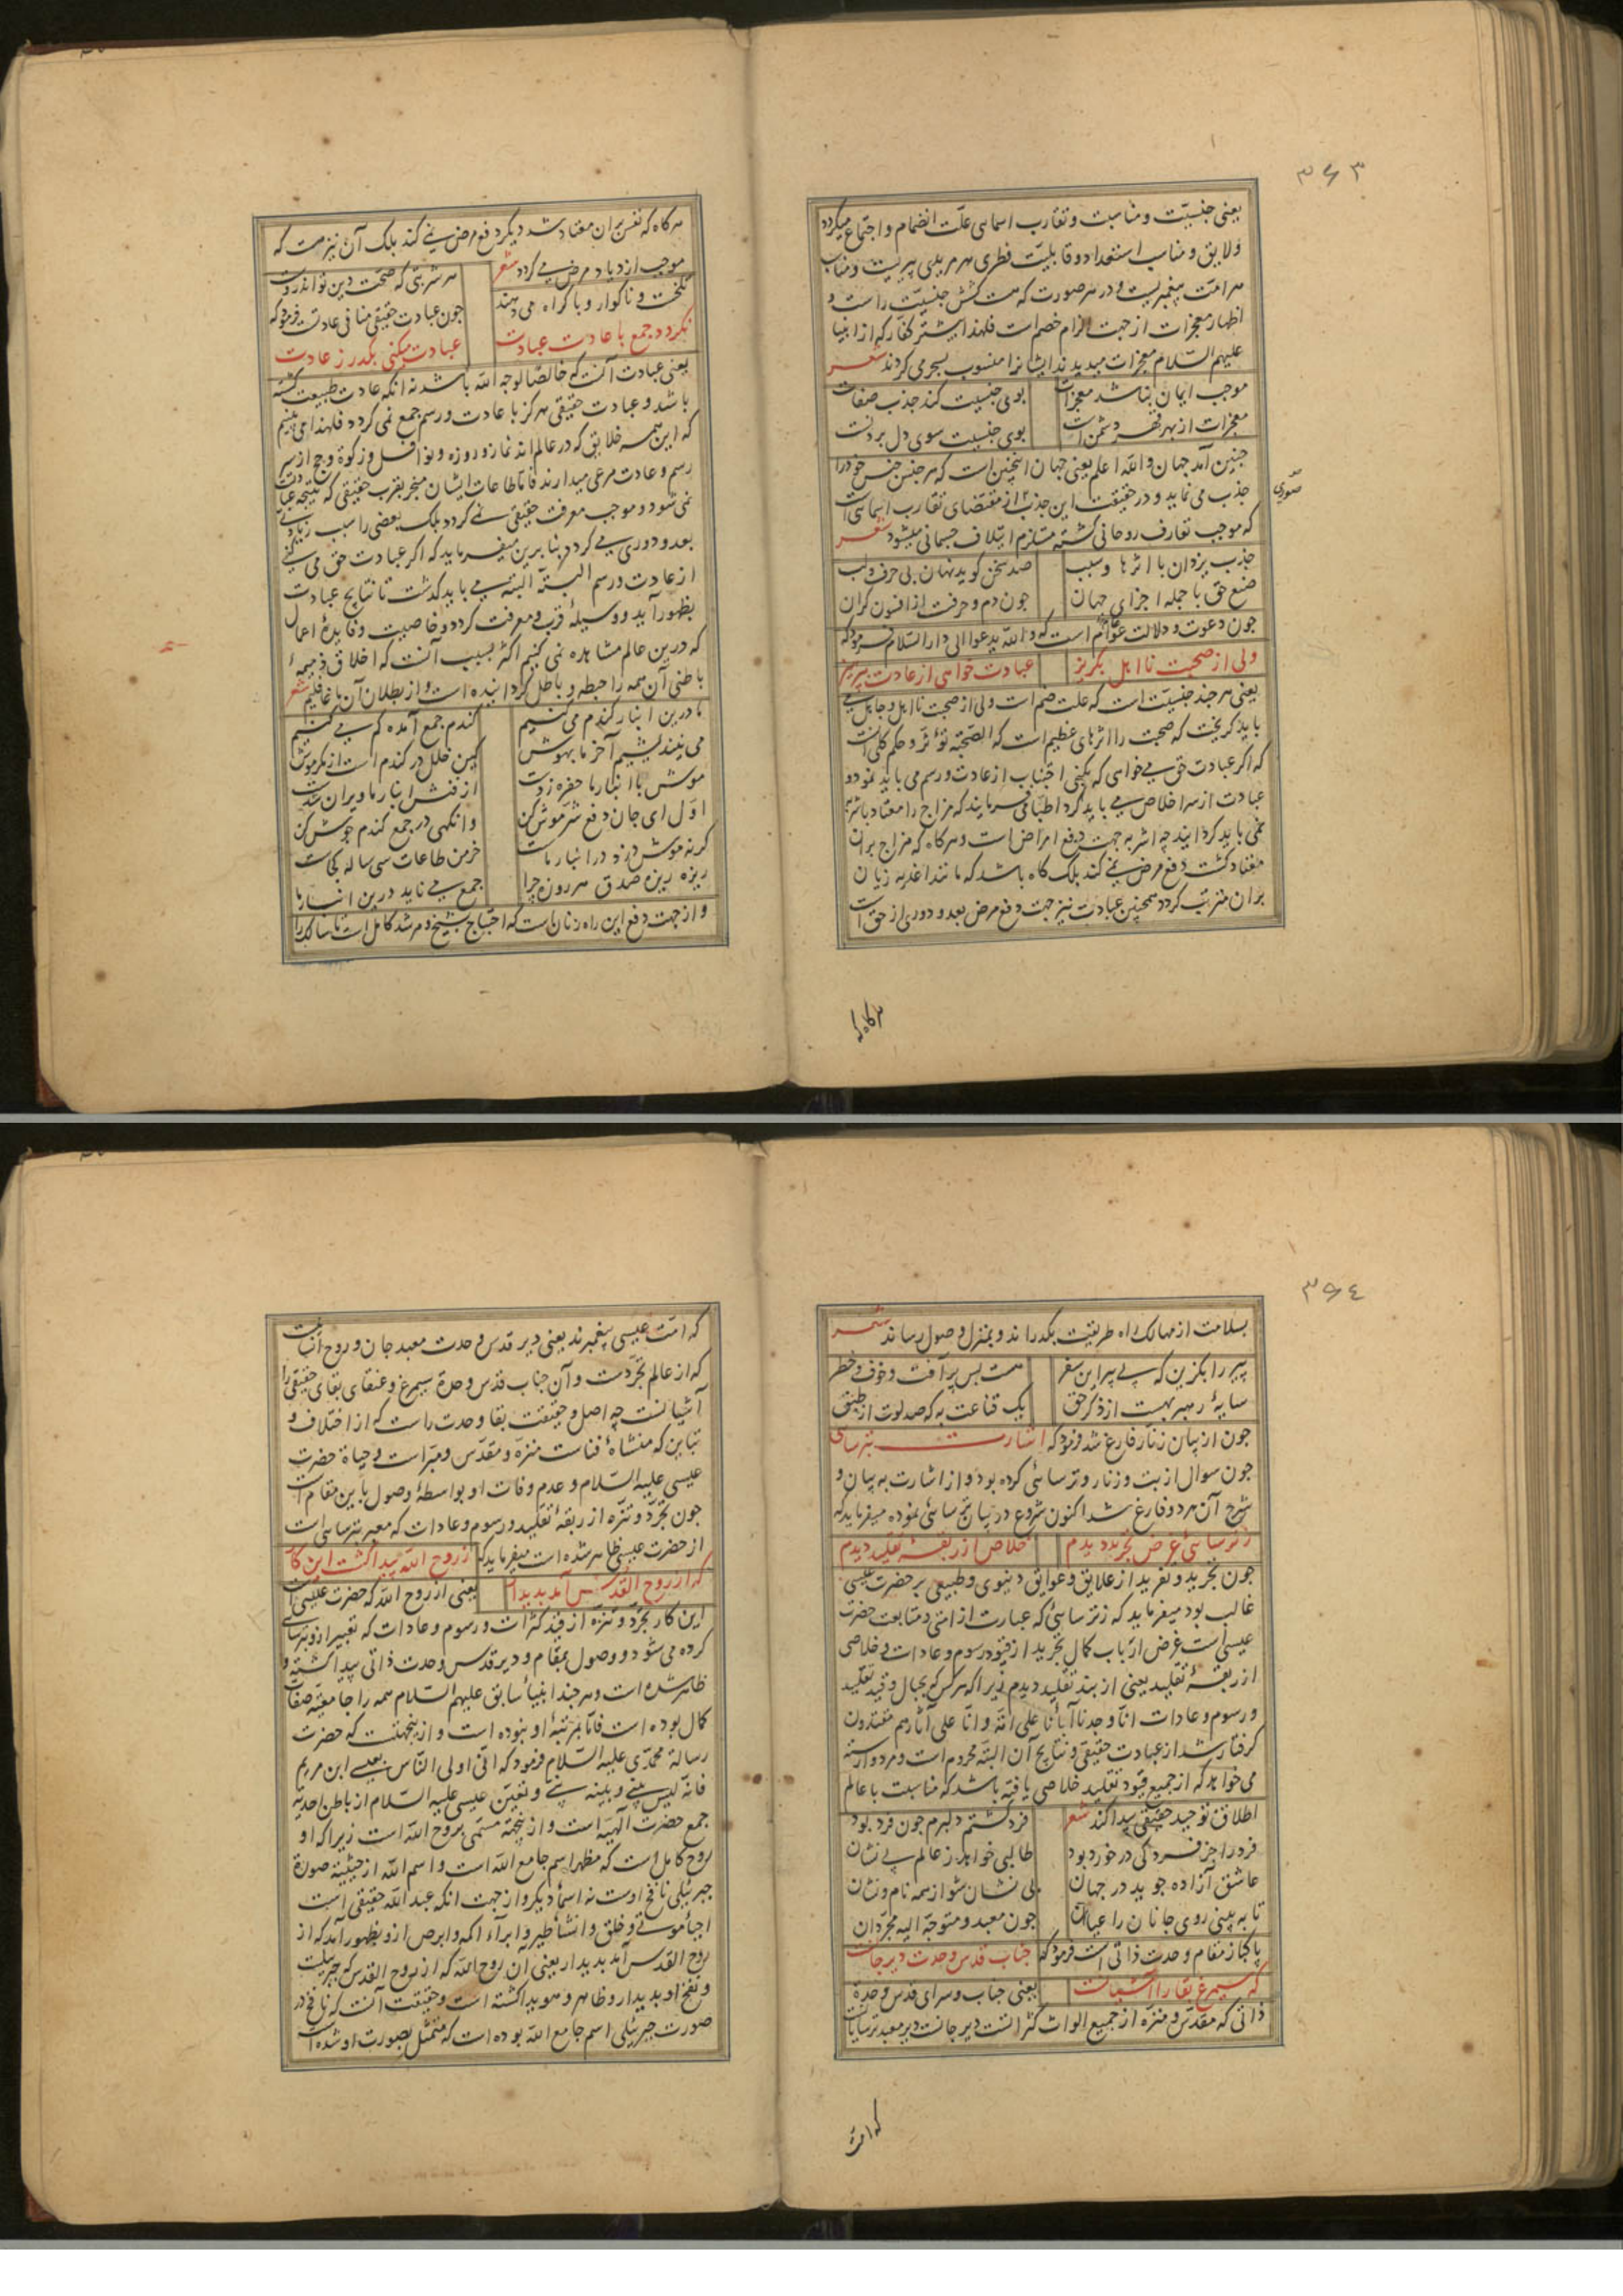 ۳۶۳
یعنی جنسیّت و مناسبت و تقارب اسمایی علّت انضمام و اجتماع میکردد
و لایق و مناسب استعداد و قابلیّت فطری هر مریدی پیریست و مناسب
هر امّت پیغمبریست و در هر صورت که هست کشش جنسیّت راست و
اظهار معجزات از جهت الزام خصم است فلهذا بیشتر کفّار که از انبیا
علیهم السّلام معجزات میدیدند ایشانرا منسوب بسحر می کردند شعر
موجب ایمان نباشد معجزات بوی جنسیت کند جذب صفات
معجزات از بهر قهر دشمن است بوی جنسیت سوی دل بردنست
چنین آمد جهان والله اعلم یعنی جهان اینچنین است که هر جنس جنس خود را
صوری
جذب می نماید و در حقیقت این جذب از مقتضای تقارب اسمائی است
که موجب تعارف روحانی کشته مستلزم ایتلاف جسمانی میشود شعر
جذب یزدان با اثرها و سبب صد سخن کوید نهان بی حرف و لب
صنع حق با جمله اجزای جهان چون دم و حرفست از افسون کران
چون دعوت و دلالت عوام است که والله یدعوا الی دار السّلام فرمود که
ولی از صحبت نا اهل بکریز عبادت خواهی از عادت بپرهیز
یعنی هر چند جنسیّت است که علت ضم است ولی از صحبت نا اهل و جاهل می
باید کریخت که صحبت را اثرهای عظیم است که الصّحبة تؤثر و حکم کلی است
که اکر عبادت حق می خواهی که بکنی اجتناب از عادت و رسم می باید نمود و
عبادت از سر اخلاص می باید کرد اطبّا می فرمایند که مزاج را معتاد باشربه
نمی باید کردانید چه اشربه بجهت دفع امراض است و هرکاه که مزاج بر آن
معتاد کشت دفع مرض نمی کند بلک کاه باشد که مانند اغذیه زیان
بر آن مترتب کردد همچنین عبادت نیز جهت دفع مرض بعد و دوری از حق است
هرکاه که
هرکاه که نفس بران معتاد شد دیکر دفع مرض نمی کند بلک آن نیز هست که
موجب ازدیاد مرض می کردد شعر هر شربتی که صحت دین تو اندروست
تلخست و ناکوار و باکراه می دهند چون عبادت حقیقی منافی عادتست فرمود که
نکردد جمع با عادت عبادت عبادت میکنی بکذر ز عادت
یعنی عبادت آنست که خالصًا لوجه الله باشد نه آنکه عادت طبیعت کشته
باشد و عبادت حقیقی هرکز با عادت و رسم جمع نمی کردد فلهذا می بینیم
که این همه خلایق که در عالم اند نماز و روزه و نوافل و زکوة و حج از سر
رسم و عادت مرعی میدارند فامّا طاعات ایشان منجر بقرب حقیقی که نتیجه عبادتست
نمی شود و موجب معرفت حقیقی نمی کردد بلک بعضی را سبب زیادتی
بعد و دوری می کردد بنا برین میفرماید که اکر عبادت حق می کنی
از عادت و رسم البتّه البتّه می باید کذشت تا نتایج عبادت
بظهور آید و وسیلهٔ قرب و معرفت کردد و خاصیت و فایدهٔ اعمال
که درین عالم مشاهده نمی کنیم اکثر بسبب آنست که اخلاق ذمیمهٔ
باطنی آن همه را حبطه و باطل کردانیده است و از بطلان آن ما غافلیم شعر
ما درین انبار کندم می کنیم کندم جمع آمده کم می کنیم
می نیندیشیم آخر ما بهوش کین خلل در کندم است از مکر موش
موش با انبار ما حفره زدست از فنش انبار ما ویران شدست
اوّل ای جان دفع شرّ موش کن وانکهی در جمع کندم جوش کن
کر نه موش دزد در انبار ماست خرمن طاعات سی ساله کجاست
ریزه ریزه صدق هر روزه چرا جمع می ناید درین انبار ما
و از جهت دفع این راه زنان است که احتیاج بشیخ و مرشد کامل است تا سالک را
۳۶۴
بسلامت از مهالک راه طریقت بکذراند و بمنزل وصول رساند شعر
پیر را بکزین که بی پیر این سفر هست بس پر آفت و خوف و خطر
سایهٔ رهبر بهست از ذکر حق یک قناعت به که صد لوت از طبق
چون از بیان زنار فارغ شد فرمود که اشارت بترسایی
چون سوال از بت و زنار و ترسائی کرده بود و از اشارت به بیان و
شرح آن هر دو فارغ شد اکنون شروع در بیان ترسائی نموده میفرماید که
ز ترسائی غرض تجرید دیدم خلاص از ربقهٔ تقلید دیدم
چون تجرید و تفرید از علایق و عوایق دنیوی و طبیعی بر حضرت عیسی
غالب بود میفرماید که ز ترسائی که عبارت از امّتی و متابعت حضرت
عیسی است غرض ارباب کمال تجرید از قیود رسوم و عادات و خلاصی
از ربقهٔ تقلید یعنی از بند تقلید دیدم زیرا که هر کس که بحبال و قید تقلید
و رسوم و عادات انّا وجدنا آبائنا علی امّة و انّا علی آثارهم مقتدون
کرفتار شد از عبادت حقیقی و نتایج آن البتّه محروم است و مرد وارسته
می خواهد که از جمیع قیود تقلید خلاصی یافته باشد که مناسبت با عالم
اطلاق توحید حقیقی پیدا کند شعر فرد کشتم دلبرم چون فرد بود
فرد را جز فرد کی در خورد بود طالبی خواهد ز عالم بی نشان
عاشق آزاده جوید در جهان بی نشان شو از همه نام و نشان
تا به بینی روی جانان را عیان چون معبد و متوجّه الیه مجرّدان
پاکباز مقام وحدت ذاتی است فرمود که جناب قدس وحدت دیر جانست
که سیمرغ بقا را آشیانست یعنی جناب و سرای قدس وحدة
ذاتی که مقدّس و منزّه از جمیع الواث کثراتست دیر جانست دیر معبد ترسایانست
که امّت
که امّت عیسی پیغمبرند یعنی دیر قدس وحدت معبد جان و روح انسانیست
که از عالم تجرّدست و آن جناب قدس وحدة سیمرغ و عنقای بقای حقیقی را
آشیانست چه اصل و حقیقت بقا وحدت راست که از اختلاف و
تباین که منشاء فناست منزّه و مقدّس و مبرّاست و حیاة حضرت
عیسی علیه السّلام و عدم وفات او بواسطهٔ وصول باین مقام است
چون تجرّد و تنزّه از ربقهٔ تقلید و رسوم و عادات که معبر بترسایی است
از حضرت عیسی ظاهر شده است میفرماید که ز روح الله پیدا کشت این کار
که از روح القدس آمد بدیدار یعنی از روح الله که حضرت عیسی است
این کار تجرّد و تنزّه از قید کثرات و رسوم و عادات که تعبیر ازو بترسایی
کرده می شود و وصول بمقام و دیر قدس وحدت ذاتی پیدا کشته و
ظاهر شده است و هر چند انبیاء سابق علیهم السّلام همه را جامعیّت صفات
کمال بوده است فامّا بمرتبهٔ او نبوده است و ازینجهتست که حضرت
رسالة محمّدی علیه السّلام فرمود که انّی اولی النّاس بعیسی ابن مریم
فانّه لیس بینی و بینه نبی و تعیّن عیسی علیه السّلام از باطن احدیّة
جمع حضرت الهیّه است و ازینجهة مسمّی بروح الله است زیرا که او
روح کامل است که مظهر اسم جامع الله است و اسم الله از حیثیّة صورة
جبرئیلی نافخ اوست نه اسماء دیکر و از جهت آنکه عبد الله حقیقی است
احیاء موتی و خلق و انشاء طیر و ابراء اکمه و ابرص ازو بظهور آمد که از
روح القدس آمد بدیدار یعنی آن روح الله که از روح القدس که جبریلست
و نفخ او بدیدار و ظاهر و هویدا کشته است و حقیقت آنست که نافخ در
صورت جبرئیلی اسم جامع الله بوده است که متمثّل بصورت او شده است